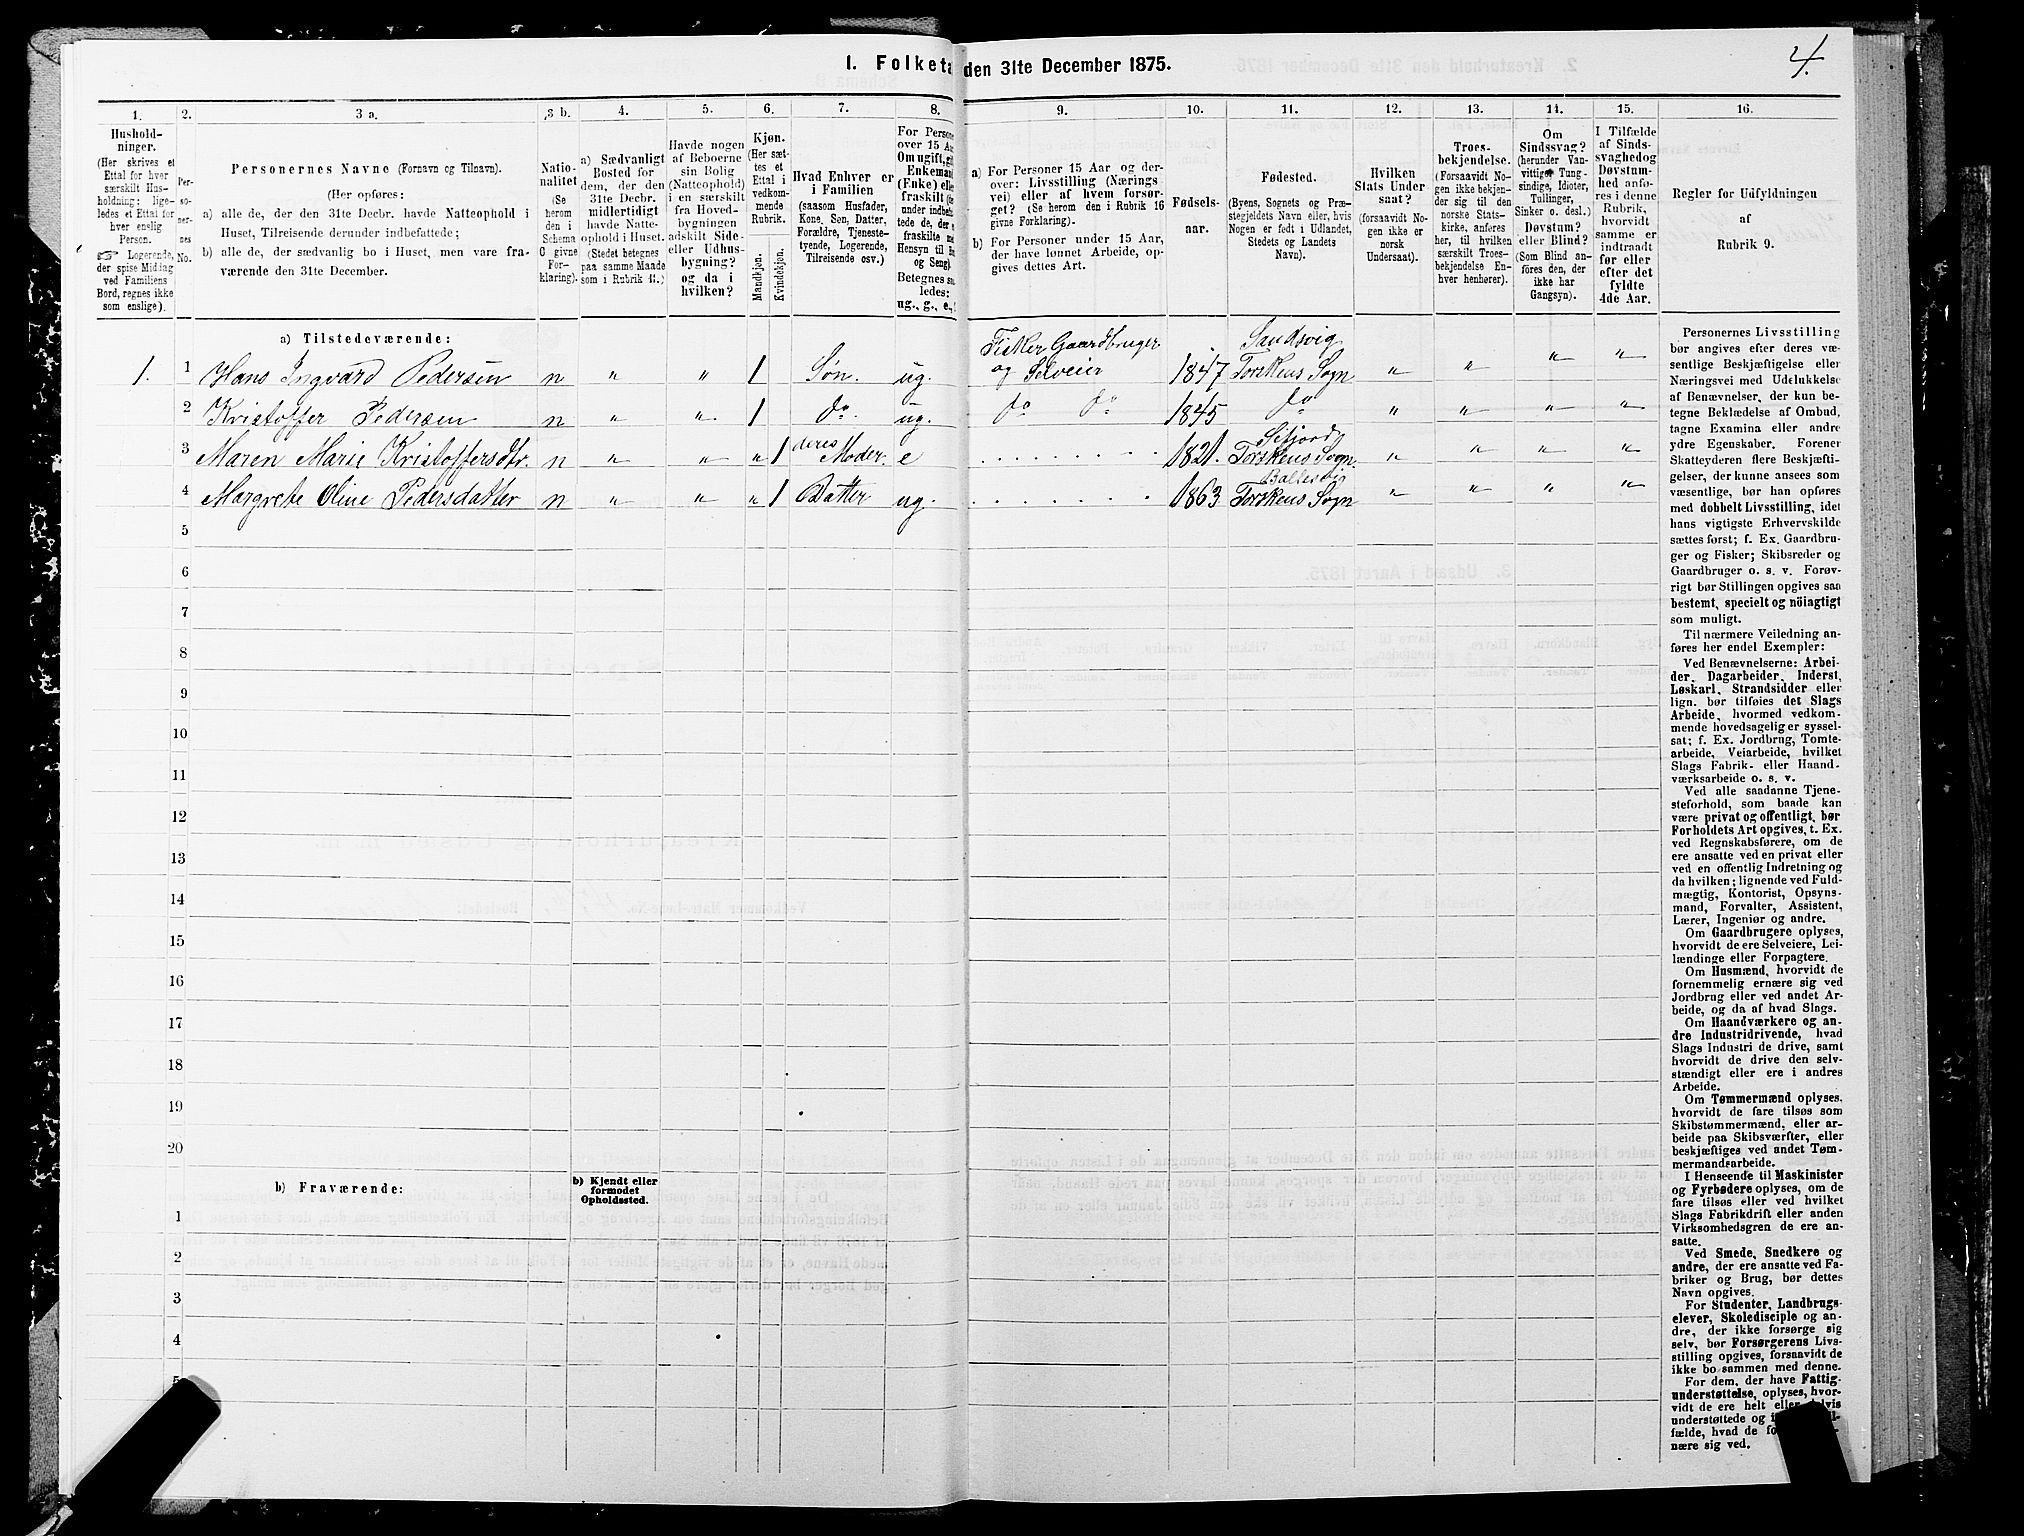 4.
1. Folketæ den 31te December 1875.
1. 2. 3 a. 3 b. 4. 5. 6. 7. 8. 9. 10. 11. 12. 13. 14. 15. 16.
Hushold-
ninger.
(Her skrives et
Ettal for hver
særskilt Hus-
holdning; lige-
ledes et Ettal for
hver enslig
Person.
☞ Logerende,
der spise Middag
ved Familiens
Bord, regnes ikke
som enslige).
Per-
so-
ner-
nes
No.
Personernes Navne (Fornavn og Tilnavn).
(Her opføres:
a) alle de, der den 31te Decbr. havde Natteophold i
Huset, Tilreisende derunder indbefattede;
b) alle de, der sædvanlig bo i Huset, men vare fra-
værende den 31te December.
Natio-
nalitet
(Se
herom
den i
Schema
G givne
For-
klaring).
a) Sædvanligt
Bosted for
dem, der den
31te Decbr.
midlertidigt
havde Natte-
ophold i Huset.
(Stedet betegnes
paa samme Maade
som i Rubrik 11.)
Havde nogen
af Beboerne
sin Bolig
(Natteophold)
i en særskilt
fra Hoved-
bygningen
adskilt Side-
eller Udhus-
bygning?
og da i
hvilken?
Kjøn.
(Her sæt-
tes et
Ettal i
vedkom-
mende
Rubrik.
Mandkjøn.
Kvindekjøn.
Hvad Enhver er
i Familien
(saasom Husfader,
Kone, Søn, Datter,
Forældre, Tjeneste-
tyende, Logerende,
Tilreisende osv.)
For Persone
over 15 Aa
Om ugift, gi
Enkeman
(Enke) elle
fraskilt (de
under indbe
tede de, der e
fraskilte me
Hensyn til Bo
og Seng).
Betegnes saa
ledes:
ug., g., e.,
a) For Personer 15 Aar og der-
over: Livsstilling (Nærings
vei) eller af hvem forsør-
get? (Se herom den i Rubrik 16
givne Forklaring).
b) For Personer under 15 Aar,
der have lønnet Arbeide, op-
gives dettes Art.
Fødsels-
aar.
Fødested.
(Byens, Sognets og Præ-
stegjeldets Navn eller, hvis
Nogen er født i Udlandet,
Stedets og Landets
Navn).
Hvilken
Stats Under
saat?
(forsaavidt No-
gen ikke er
norsk
Undersaat).
Troes-
bekjendelse.
(Forsaavidt No-
gen ikke bekjen-
der sig til den
norske Stats-
kirke, anføres
her, til hvilken
særskilt Troes-
bekjendelse En-
hver henhører).
Om
Sindssvag?
(herunder Van-
vittige, Tung-
sindige, Idioter,
Tullinger,
Sinker o. desl.)
Døvstum?
eller Blind?
(Som Blind an-
føres den, der
ikke har
Gangsyn).
I Tilfælde
af Sinds-
svaghed og
Døvstum-
hed anfø-
res i denne
Rubrik,
hvorvidt
samme er
indtraadt
før eller
efter det
fyldte
4de Aar.
Regler for Udfyldningen
af
Rubrik 9.
a) Tilstedeværende:
Fisker Gaardbruger Sandsvig
1. 1 Hans Ingvard Pedersen n „ „ 1 Søn. ug. og Selveier 1847 Torskens Sogn „ „ „ „
2 Kristoffer Pedersen n „ „ 1 do. ug. do do 1845 do „ „ „ „
3 Maren Marie Kristoffersdtr. n „ „ „ 1 deres Moder. e 1821. Sifjord Torskens Sogn. „ „ „ „
4 Margrete Oline Pedersdatter n „ „ „ 1 Datter ug. 1863 Ballesvig Torskens Sogn „ „ „ „
5
6
7
8
9
10
11
12
13
14
15
16
17
18
19
20
b) Fraværende:
b) Kjendt eller
formodet
Opholdssted.
1
2
3
4
5
Personernes Livsstilling
bør angives efter deres væ-
sentlige Beskjæftigelse eller
Næringsvei med Udelukkelse
af Benævnelser, der kun be-
tegne Beklædelse af Ombud,
tagne Examina eller andre
ydre Egenskaber. Forener
Skatteyderen flere Beskjæfti-
gelser, der kunne ansees som
væsentlige, bør han opføres
med dobbelt Livsstilling, idet
hans vigtigste Erhvervskilde
sættes først; f. Ex. Gaardbru-
ger og Fisker; Skibsreder og
Gaardbruger o. s. v. Forøv-
rigt bør Stillingen opgives saa
bestemt, specielt og nöiagtigt
som muligt.
Til nærmere Veiledning an-
føres her endel Exempler:
Ved Benævnelserne: Arbei-
der, Dagarbeider, Inderst,
Løskarl, Strandsidder eller
lign. bør tilføies det Slags
Arbeide, hvormed vedkom-
mende hovedsagelig er syssel-
sat; f. Ex. Jordbrug, Tomte-
arbeide, Veiarbeide, hvilket
Slags Fabrik- eller Haand-
værksarbeide o. s. v.
Ved alle saadanne Tjene-
steforhold, som baade kan
være privat og offentligt, bør
Forholdets Art opgives, t. Ex.
ved Regnskabsførere, om de
ere ansatte ved en privat eller
ved en offentlig Indretning og
da hvilken; lignende ved Fuld-
mægtig, Kontorist, Opsyns-
mand, Forvalter, Assistent,
Lærer, Ingeniør og andre.
Om Gaardbrugere oplyses,
hvorvidt de ere Selveiere, Lei-
lændinge eller Forpagtere.
Om Husmænd, hvorvidt de
fornemmelig ernære sig ved
Jordbrug eller ved andet Ar-
beide, og da af hvad Slags.
Om Haandværkere og an-
dre Industridrivende, hvad
Slags Industri de drive, samt
hvorvidt de drive den selv-
stændigt eller ere i andres
Arbeide.
Om Tømmermænd oplyses,
hvorvidt de fare tilsøs som
Skibstømmermænd, eller ar-
beide paa Skibsværfter, eller
beskjæftiges ved andet Tøm-
mermandsarbeide.
I Henseende til Maskinister
og Fyrbødere oplyses, om de
fare tilsøs eller ved hvilket
Slags Fabrikdrift eller anden
Virksomhedsgren de ere an-
satte.
Ved Smede, Snedkere og
andre, der ere ansatte ved Fa-
briker og Brug, bør dettes
Navn opgives.
For Studenter, Landbrugs-
elever, Skoledisciple og an-
dre, der ikke forsørge sig
selv, bør Forsørgerens Livs-
stilling opgives, forsaavidt de
ikke bo sammen med denne.
For dem, der have Fattig-
understøttelse, oplyses, hvor-
vidt de ere helt eller
understøttede og i
fælde, hvad de
nære sig ved.